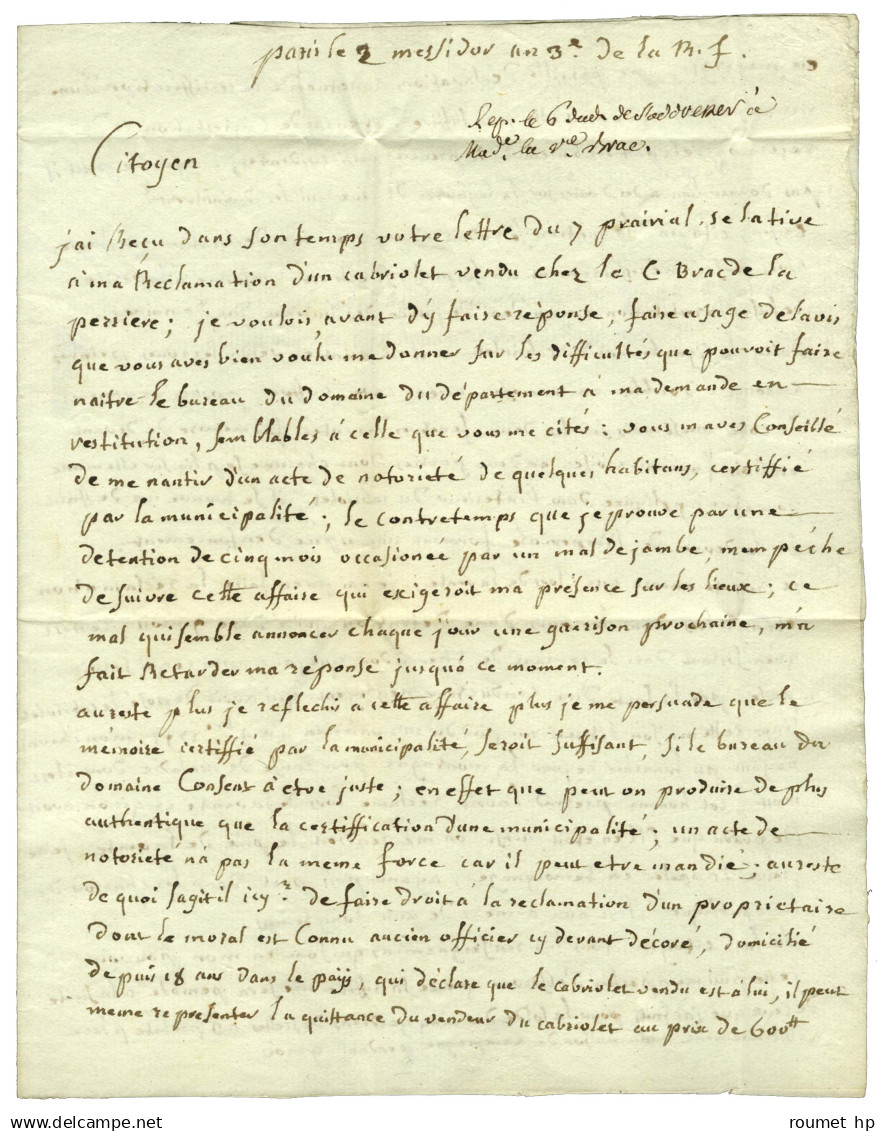 paris le 2 messidor an 3e de la R. f.
Rep. le 6 dud. de
Made. la ve. Brac.
Citoyen
j'ai Reçu dans son temps votre lettre du 7 prairial, relative
a ma Réclamation d'un cabriolet vendu chez le C. Brac de la
perriere; je voulois, avant d'y faire réponse, faire usage de lavis
que vous aves bien voulu me donner sur les difficultés que pouvoit faire
naitre le bureau du domaine du département à ma demande en
restitution, semblables à celle que vous me cités: vous m'aves Conseillé
de me nantir d'un acte de notorieté de quelques habitans, certiffié
par la municipalité; le contretemps que jeprouve par une
detention de cinq mois occasionée par un mal de jambe, mempêche
de suivre cette affaire qui exigeroit ma présence sur les lieux; ce
mal qui semble annoncer chaque jour une guerison prochaine, m'a
fait Retarder ma réponse jusquà ce moment.
au reste plus je reflechis à cette affaire plus je me persuade que le
mémoire certiffié par la municipalité, seroit suffisant, si le bureau du
domaine Consent à etre juste; en effet que peut on produire de plus
authentique que la certiffication d'une municipalité; un acte de
notorieté n'à pas la meme force car il peut etre mandié; au reste
de quoi sagit il icy? de faire droit à la reclamation d'un proprietaire
dont le moral est Connu ancien officier cy devant décoré, domicilié
depuis 18 ans dans le païs, qui déclare que le cabriolet vendu est à lui, il peut
meme representer la quittance du vendeur du cabriolet au prix de 600tt